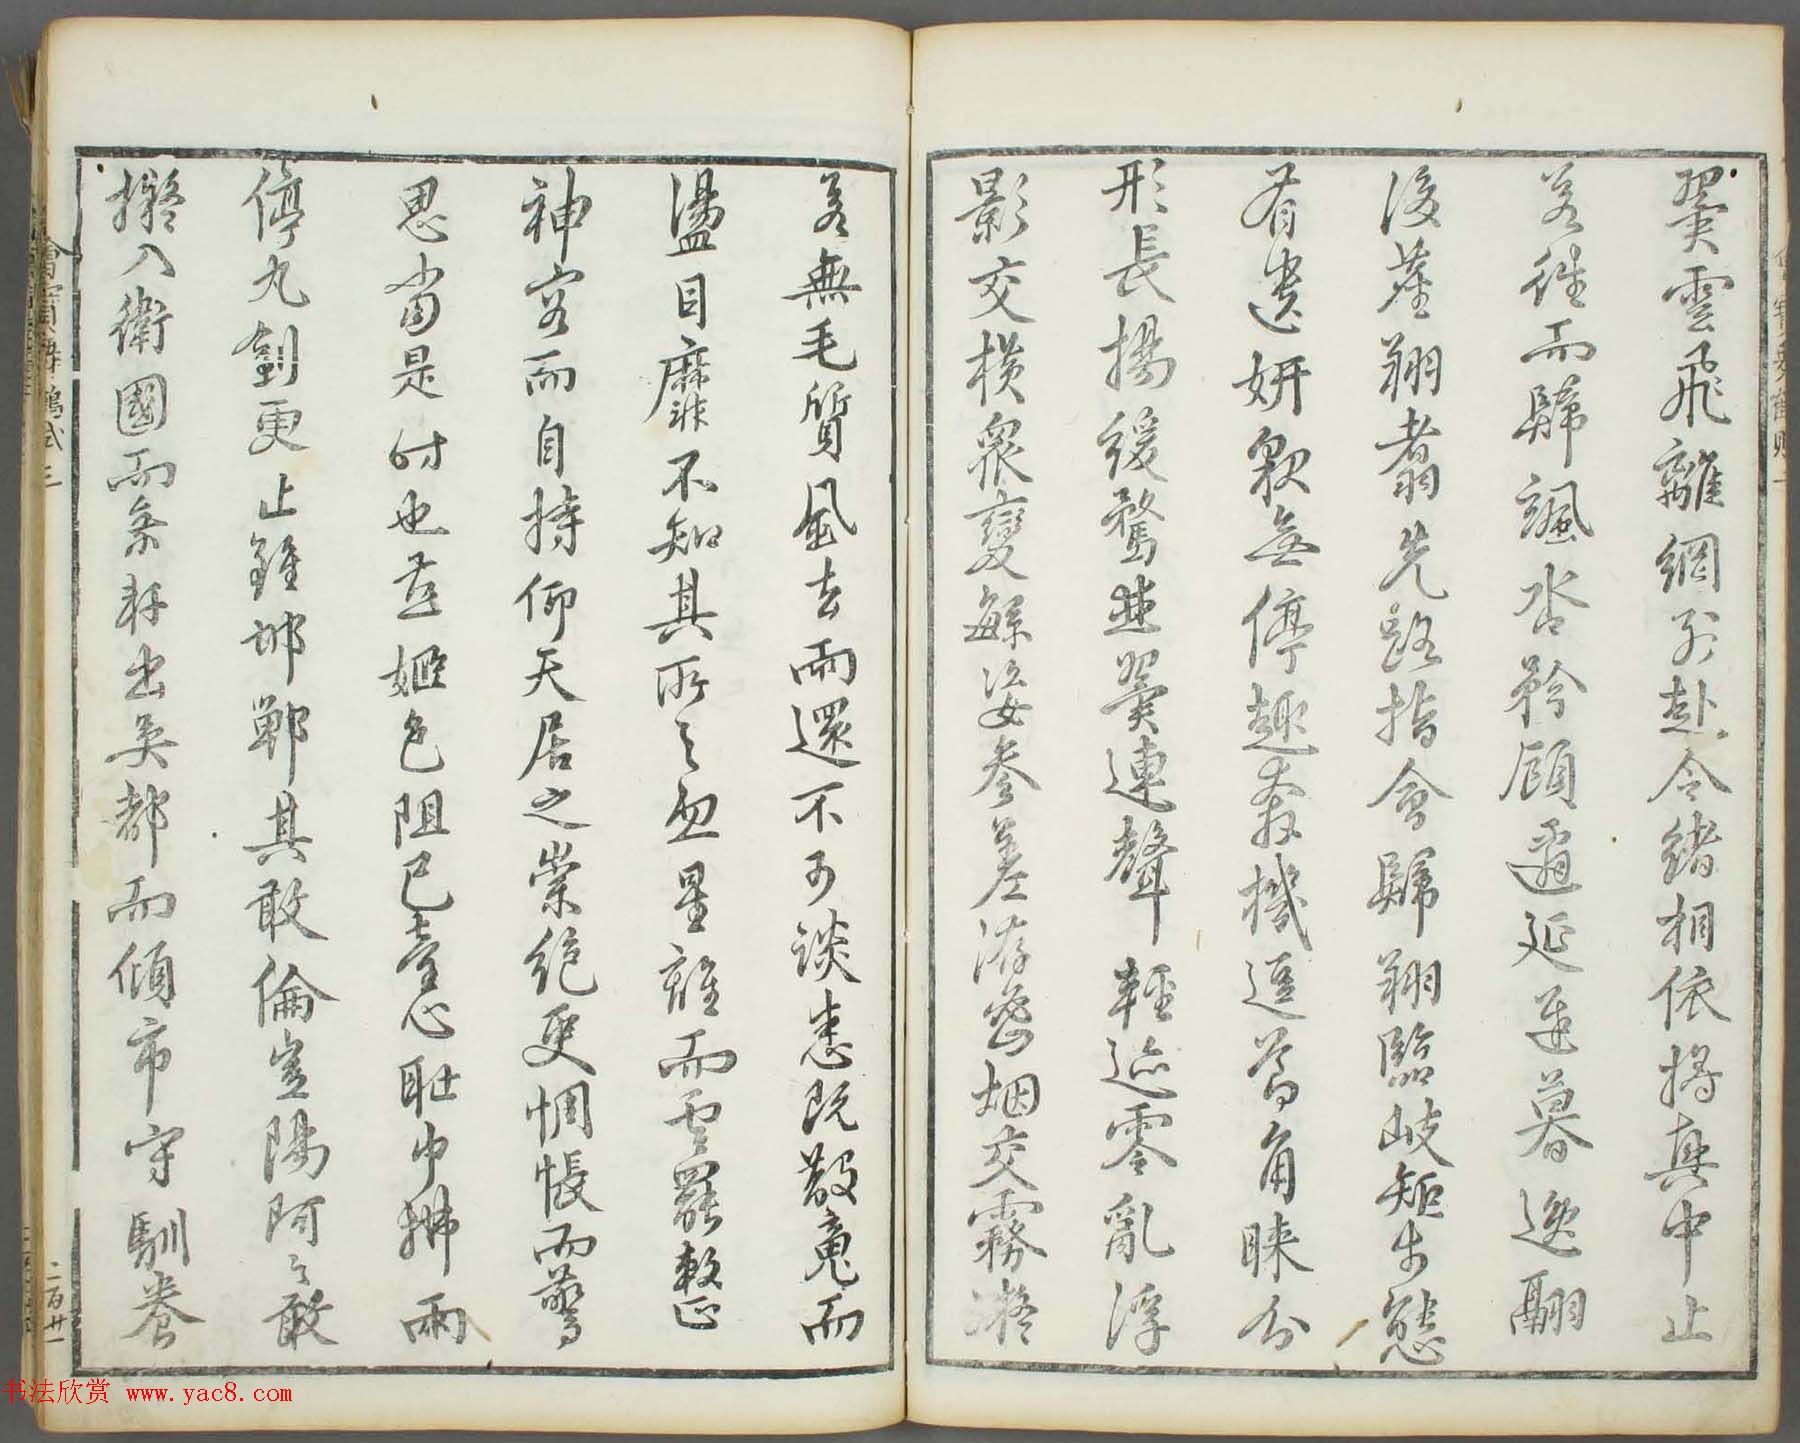 翼雲飛離網別赴合緒相依將興中止
若往而歸颯沓矜顧遷延遲暮逸翮
後塵翔翥先路指會歸翔臨岐矩步態
有遺妍貌無停趣奔機逗節角睞分
形長揚緩騖並翼連聲輕迹零亂浮
影交橫眾變繁姿參差洊密烟交霧凝
若無毛質風去雨還不可談悉既散魂而
盪目靡不知其所之忽星離而雲罷整
神容而自持仰天居之崇絕更惆悵而驚
思當是時也燕姬色阻巴童心恥巾拂兩
停丸劍更止雖邯鄲其敢倫豈陽阿之敢
擬入衛國而乘軒出吳都而傾市守馴養
舞鶴賦三
二百廿一
书法欣赏 www.yac8.com